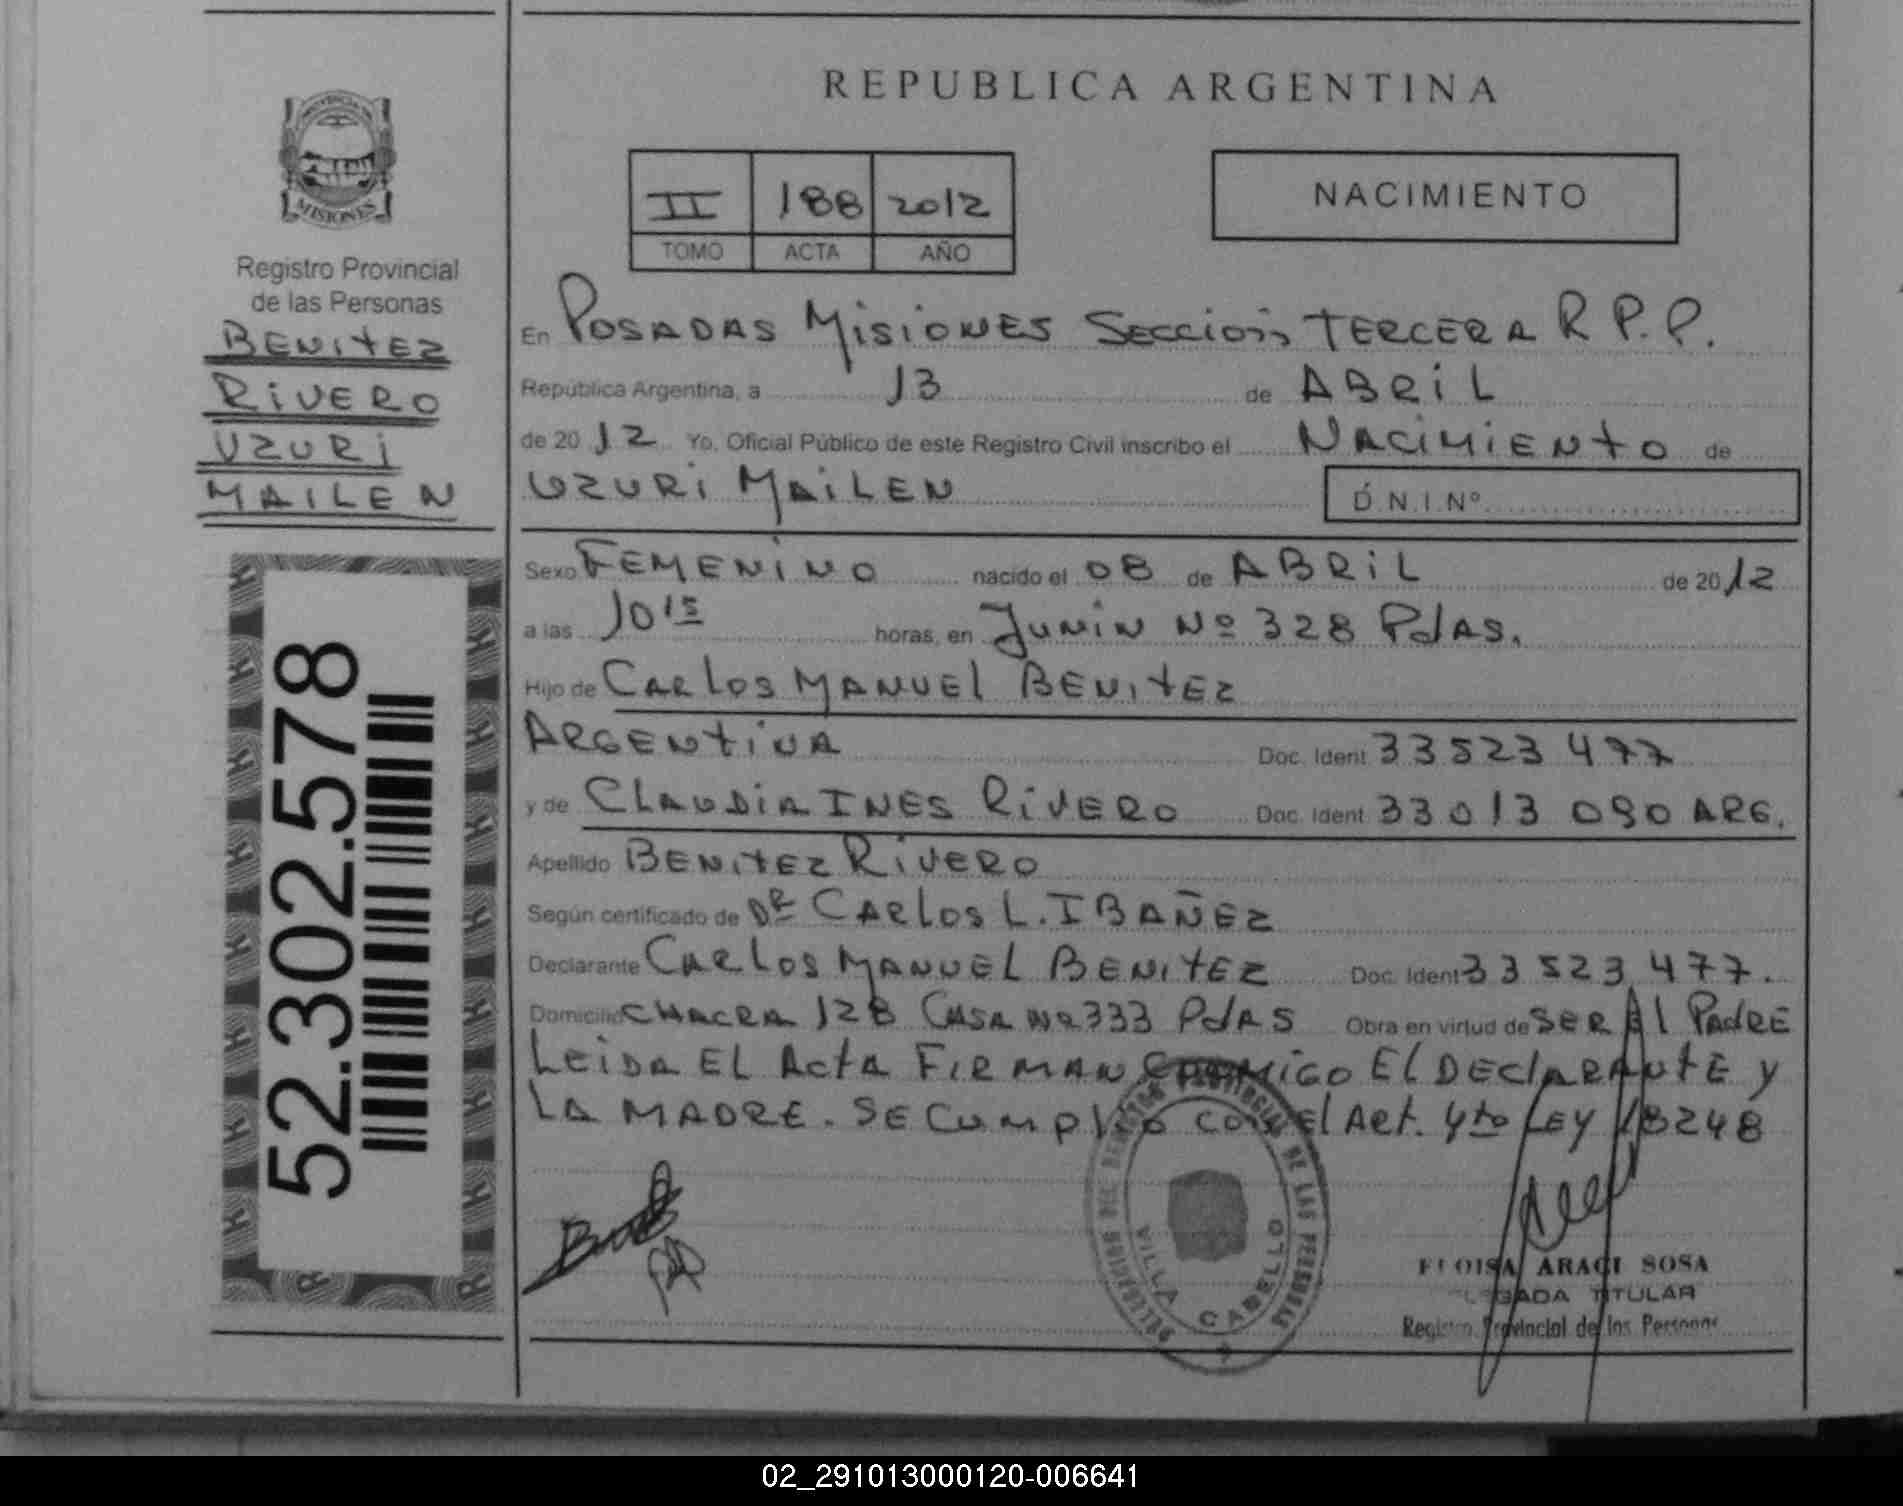 REPUBLICA ARGENTINA
PROVINCIA DE
MISIONES
Registro Provincial
de las Personas
BENITEZ
RIVERO
UZURI
MAILEN
52.302.578
II 188 2012
TOMO ACTA AÑO
NACIMIENTO
En POSADAS MISIONES SECCION TERCERA R P.P.
República Argentina, a 13 de ABRIL
de 2012 Yo, Oficial Público de este Registro Civil inscribo el NACIMIENTO de
UZURI MAILEN D.N.I.Nº
Sexo FEMENINO nacido el 08 de ABRIL de 2012
a las 10 15 horas, en JUNIN Nº 328 PdAS.
Hijo de CARLOS MANUEL BENITEZ
ARGENTINA Doc. Ident. 33523477
y de CLAUDIA INES RIVERO Doc. Ident. 33013090 ARG.
Apellido BENITEZ RIVERO
Según certificado de DR CARLOS L. IBAÑEZ
Declarante CARLOS MANUEL BENITEZ Doc. Ident. 33523477.
Domicilio CHACRA 128 CASA Nº 333 PdAS Obra en virtud de SER El PADRE
LEIDA EL ACTA FIRMAN CONMIGO El DEClARANTE y
LA MADRE. SE CUMPLIO CON El ART. 4to LEY 18248
VILLA CABELLO
ELOISA ARACI SOSA
DELEGADA TITULAR
Registro Provincial de las Personas
02_291013000120-006641